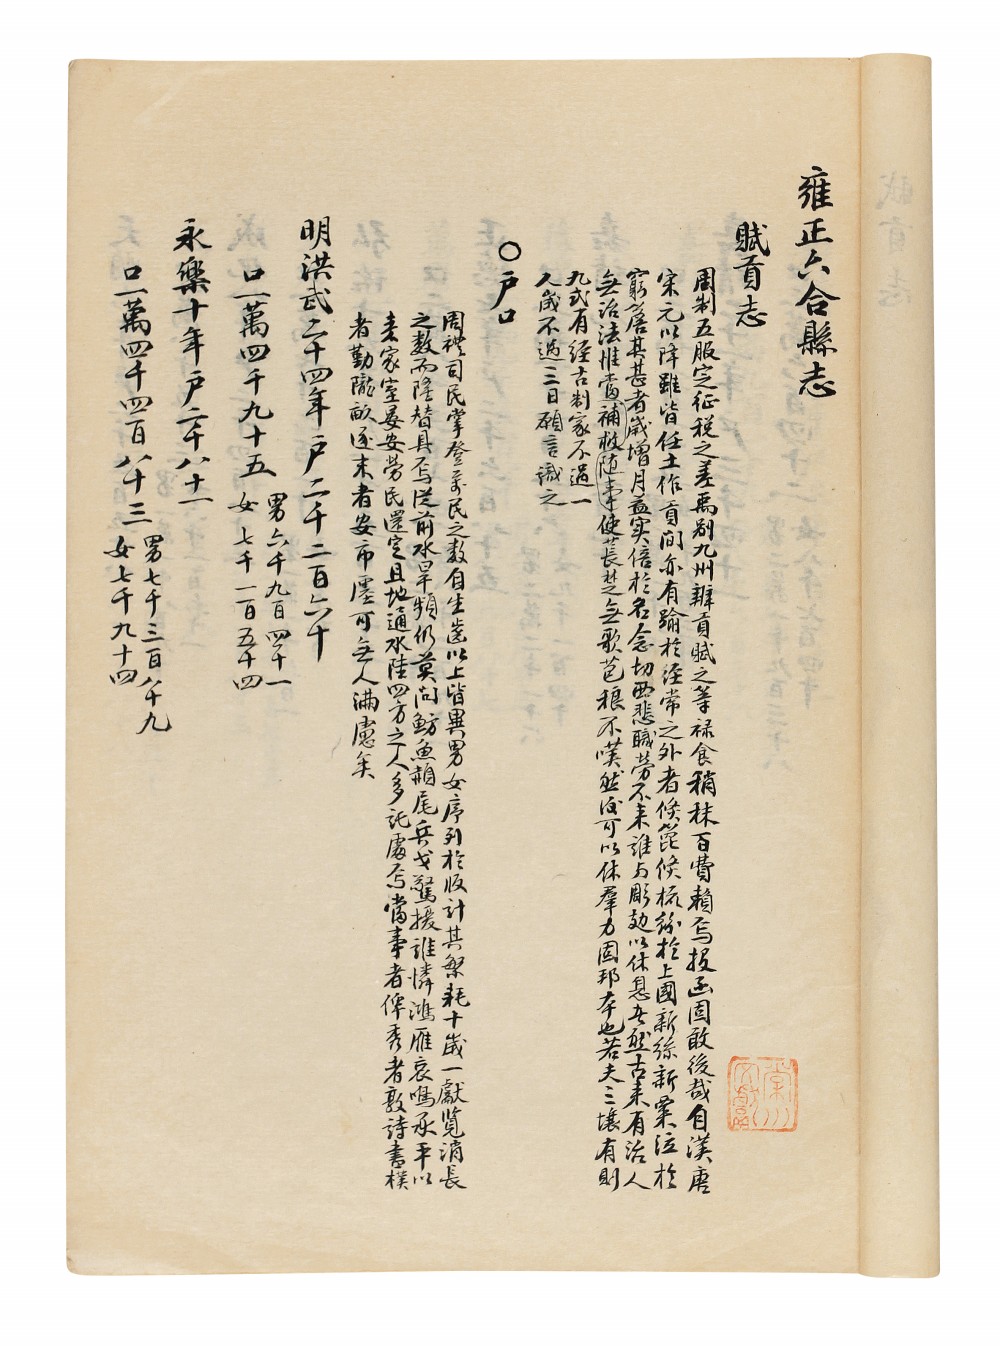 雍正六合縣志
賦貢志
周制五服定征税之差禹别九州辨貢賦之等禄食稍秣百費賴焉投函固敢後哉自漢唐
宋元以降雖皆任土作貢间亦有踰於经常之外者候篚候於上國新絲新粟泣於
窮簷其甚者歲增月益实倍於名念切西悲職劳不来誰与彫勀以休息是然古来有治人
無治法惟當補救随事使萇楚無歌苞稂不嘆然後可以休羣力固邦本也若夫三壤有則
九式有经古制家不過一
人歲不過三日願言識之
○户口
周禮司民掌登萬民之数自生齒以上皆異男女序列於版计其繁耗十歲一獻览消長
之数而隆替具焉從前水旱頻仍莫问魴魚赬尾兵戈驚擾誰憐鴻雁哀鳴承平以
来家室晏安劳民還定且地通水陸四方之人多託處焉當事者俾秀者敦詩書樸
者勤隴畝逐末者安市廛可無人满慮矣
明洪武二十四年户二千二百六十
口一萬四千九十五 男六千九百四十一
女七千一百五十四
永樂十年户二千八十一
口一萬四千四百八十三 男七千三百八十九
女七千九十四